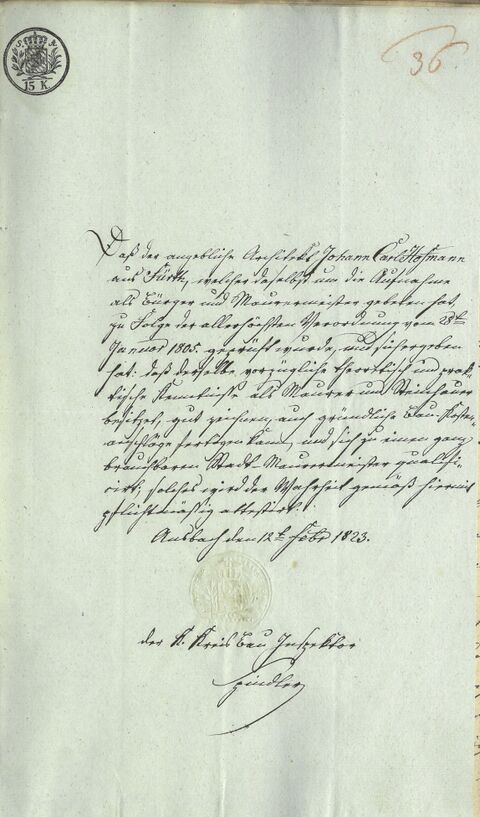 15 K.
36
Daß der angebliche Architekt Johann Carl Hofmann
aus Fürth, welcher daselbst um die Aufnahme
als Bürger und Maurermeister gebeten hat,
zu Folge der allerhöchsten Verordnung vom 28ten
Januar 1805. geprüft wurde, und sich ergeben
hat: daß derselbe vorzügliche theoretisch und prak-
tische Kenntnisse als Maurer und Steinhauer
besitzet, gut zeichnen, auch gründliche Bau-Kosten-
anschläge fertigen kann, und sich zu einen ganz
brauchbaren Stadt-Maurermeister qualifi-
cirt; solches wird der Wahrheit gemäß hiermit
pflichtmäßig attestirt.
Ansbach den 12ten Febr 1823.
der K. Kreis Bau Inspektor
Spindler